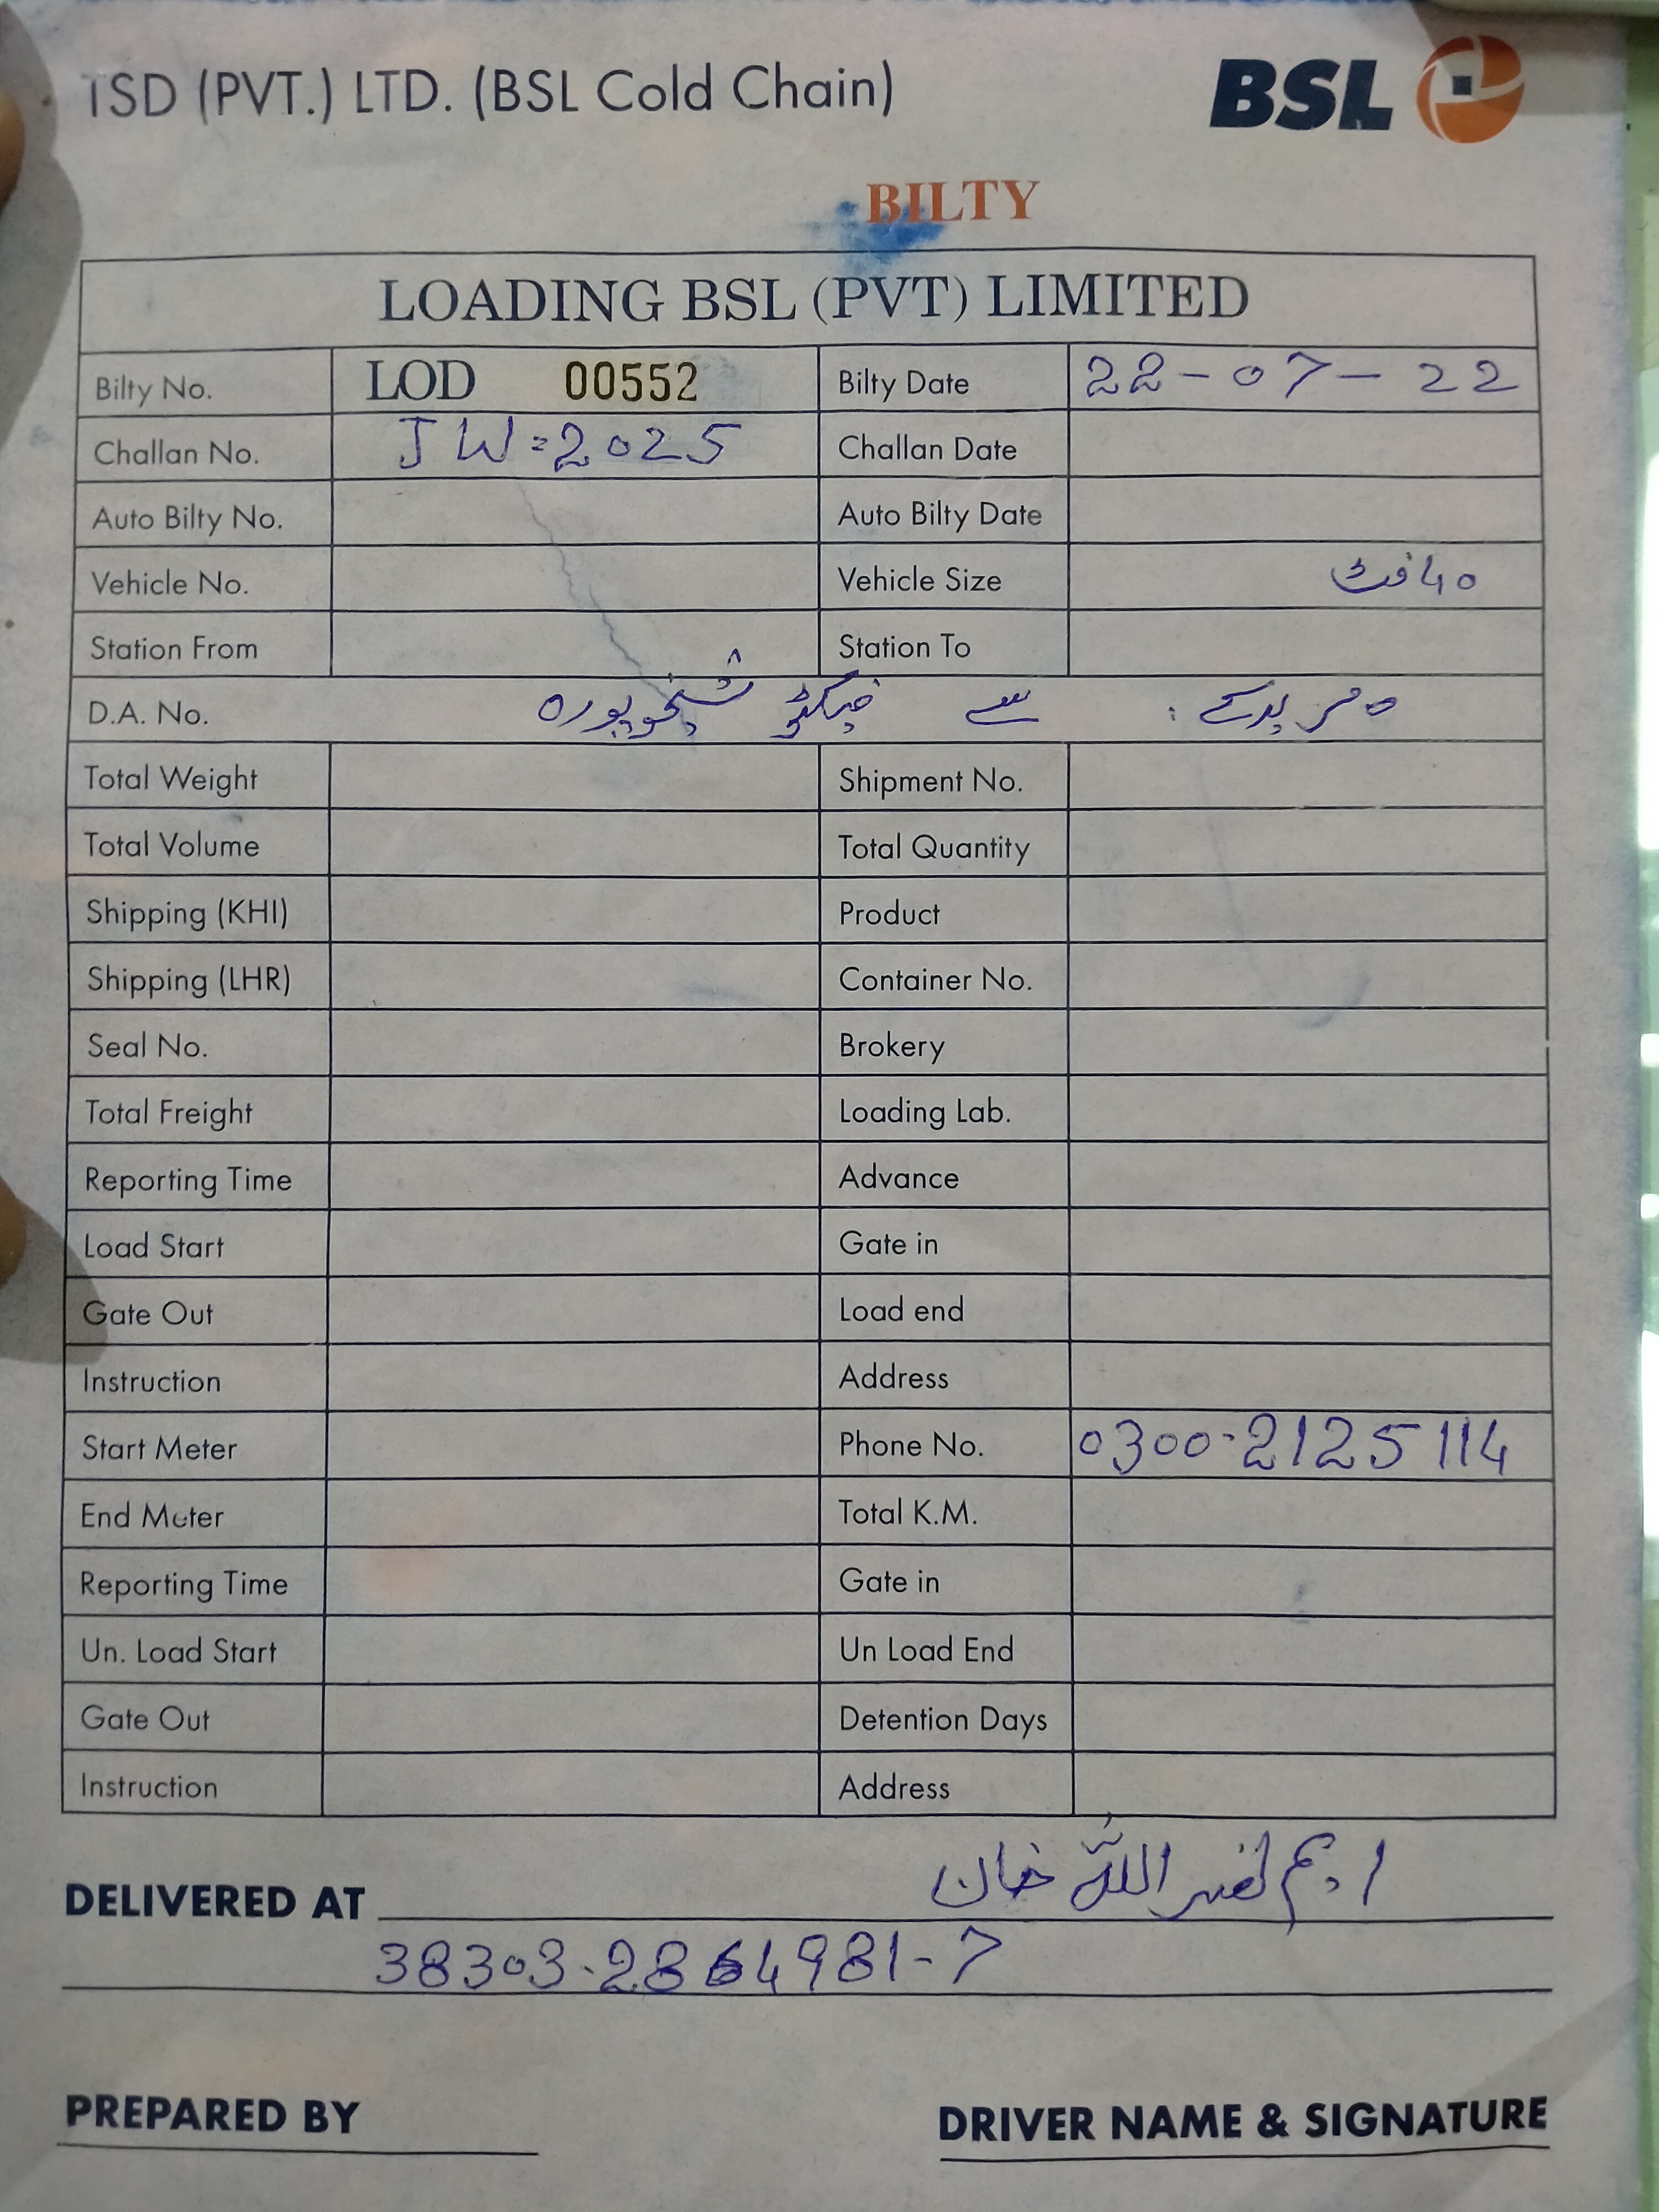 TSD (PVT.) LTD. (BSL Cold Chain)
BSL
BILTY
LOADING BSL (PVT) LIMITED
Bilty No. LOD 00552 Bilty Date 22-07-22
Challan No. JW=2025 Challan Date
Auto Bilty No. Auto Bilty Date
Vehicle No. Vehicle Size 40 فٹ
Station From Station To
D.A. No. سے شیخوپورہ
Total Weight Shipment No.
Total Volume Total Quantity
Shipping (KHI) Product
Shipping (LHR) Container No.
Seal No. Brokery
Total Freight Loading Lab.
Reporting Time Advance
Load Start Gate in
Gate Out Load end
Instruction Address
Start Meter Phone No. 0300-2125114
End Meter Total K.M.
Reporting Time Gate in
Un. Load Start Un Load End
Gate Out Detention Days
Instruction Address
DELIVERED AT ایم نصر اللہ خان
38303-2864981-7
PREPARED BY DRIVER NAME & SIGNATURE